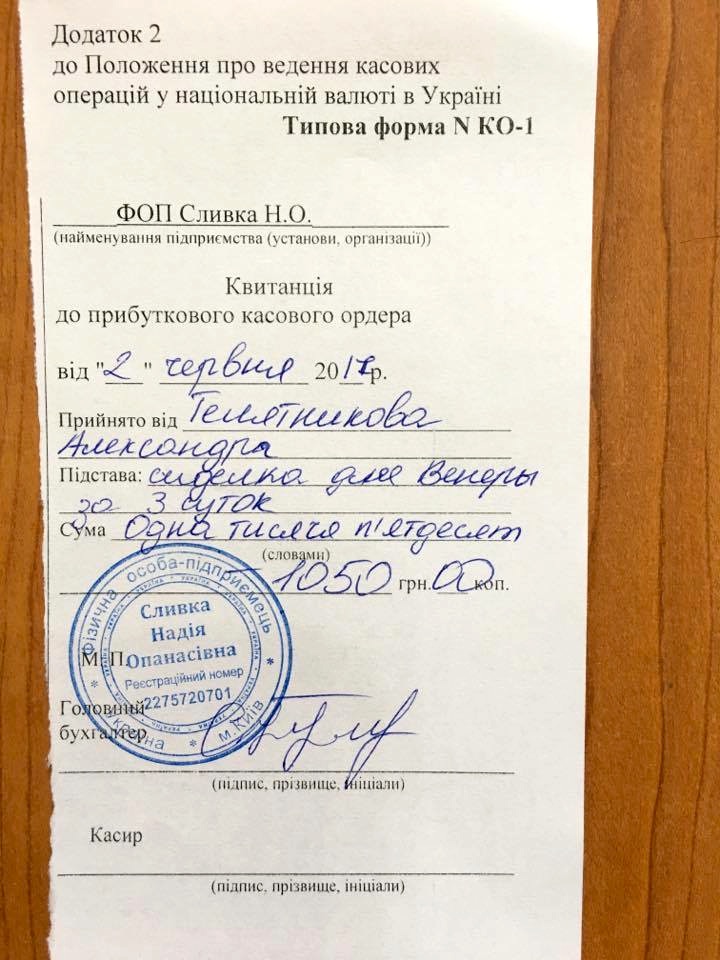 Додаток 2
до Положення про ведення касових
операцій у національній валюті в Україні
Типова форма N КО-1
ФОП Сливка Н.О.
(найменування підприємства (установи, організації))
Квитанція
до прибуткового касового ордера
від "2" червня 2017р.
Прийнято від Телятникова
Александра
Підстава: сиделка для Венеры
за 3 суток
Сума Одна тисяча п'ятдесят
(словами)
1050 грн. 00 коп.
Фізична особа-підприємець
Сливка
Надія
Опанасівна
Реєстраційний номер
2275720701
Україна * м.Київ
М. П.
Головний
бухгалтер
(підпис, прізвище, ініціали)
Касир
(підпис, прізвище, ініціали)